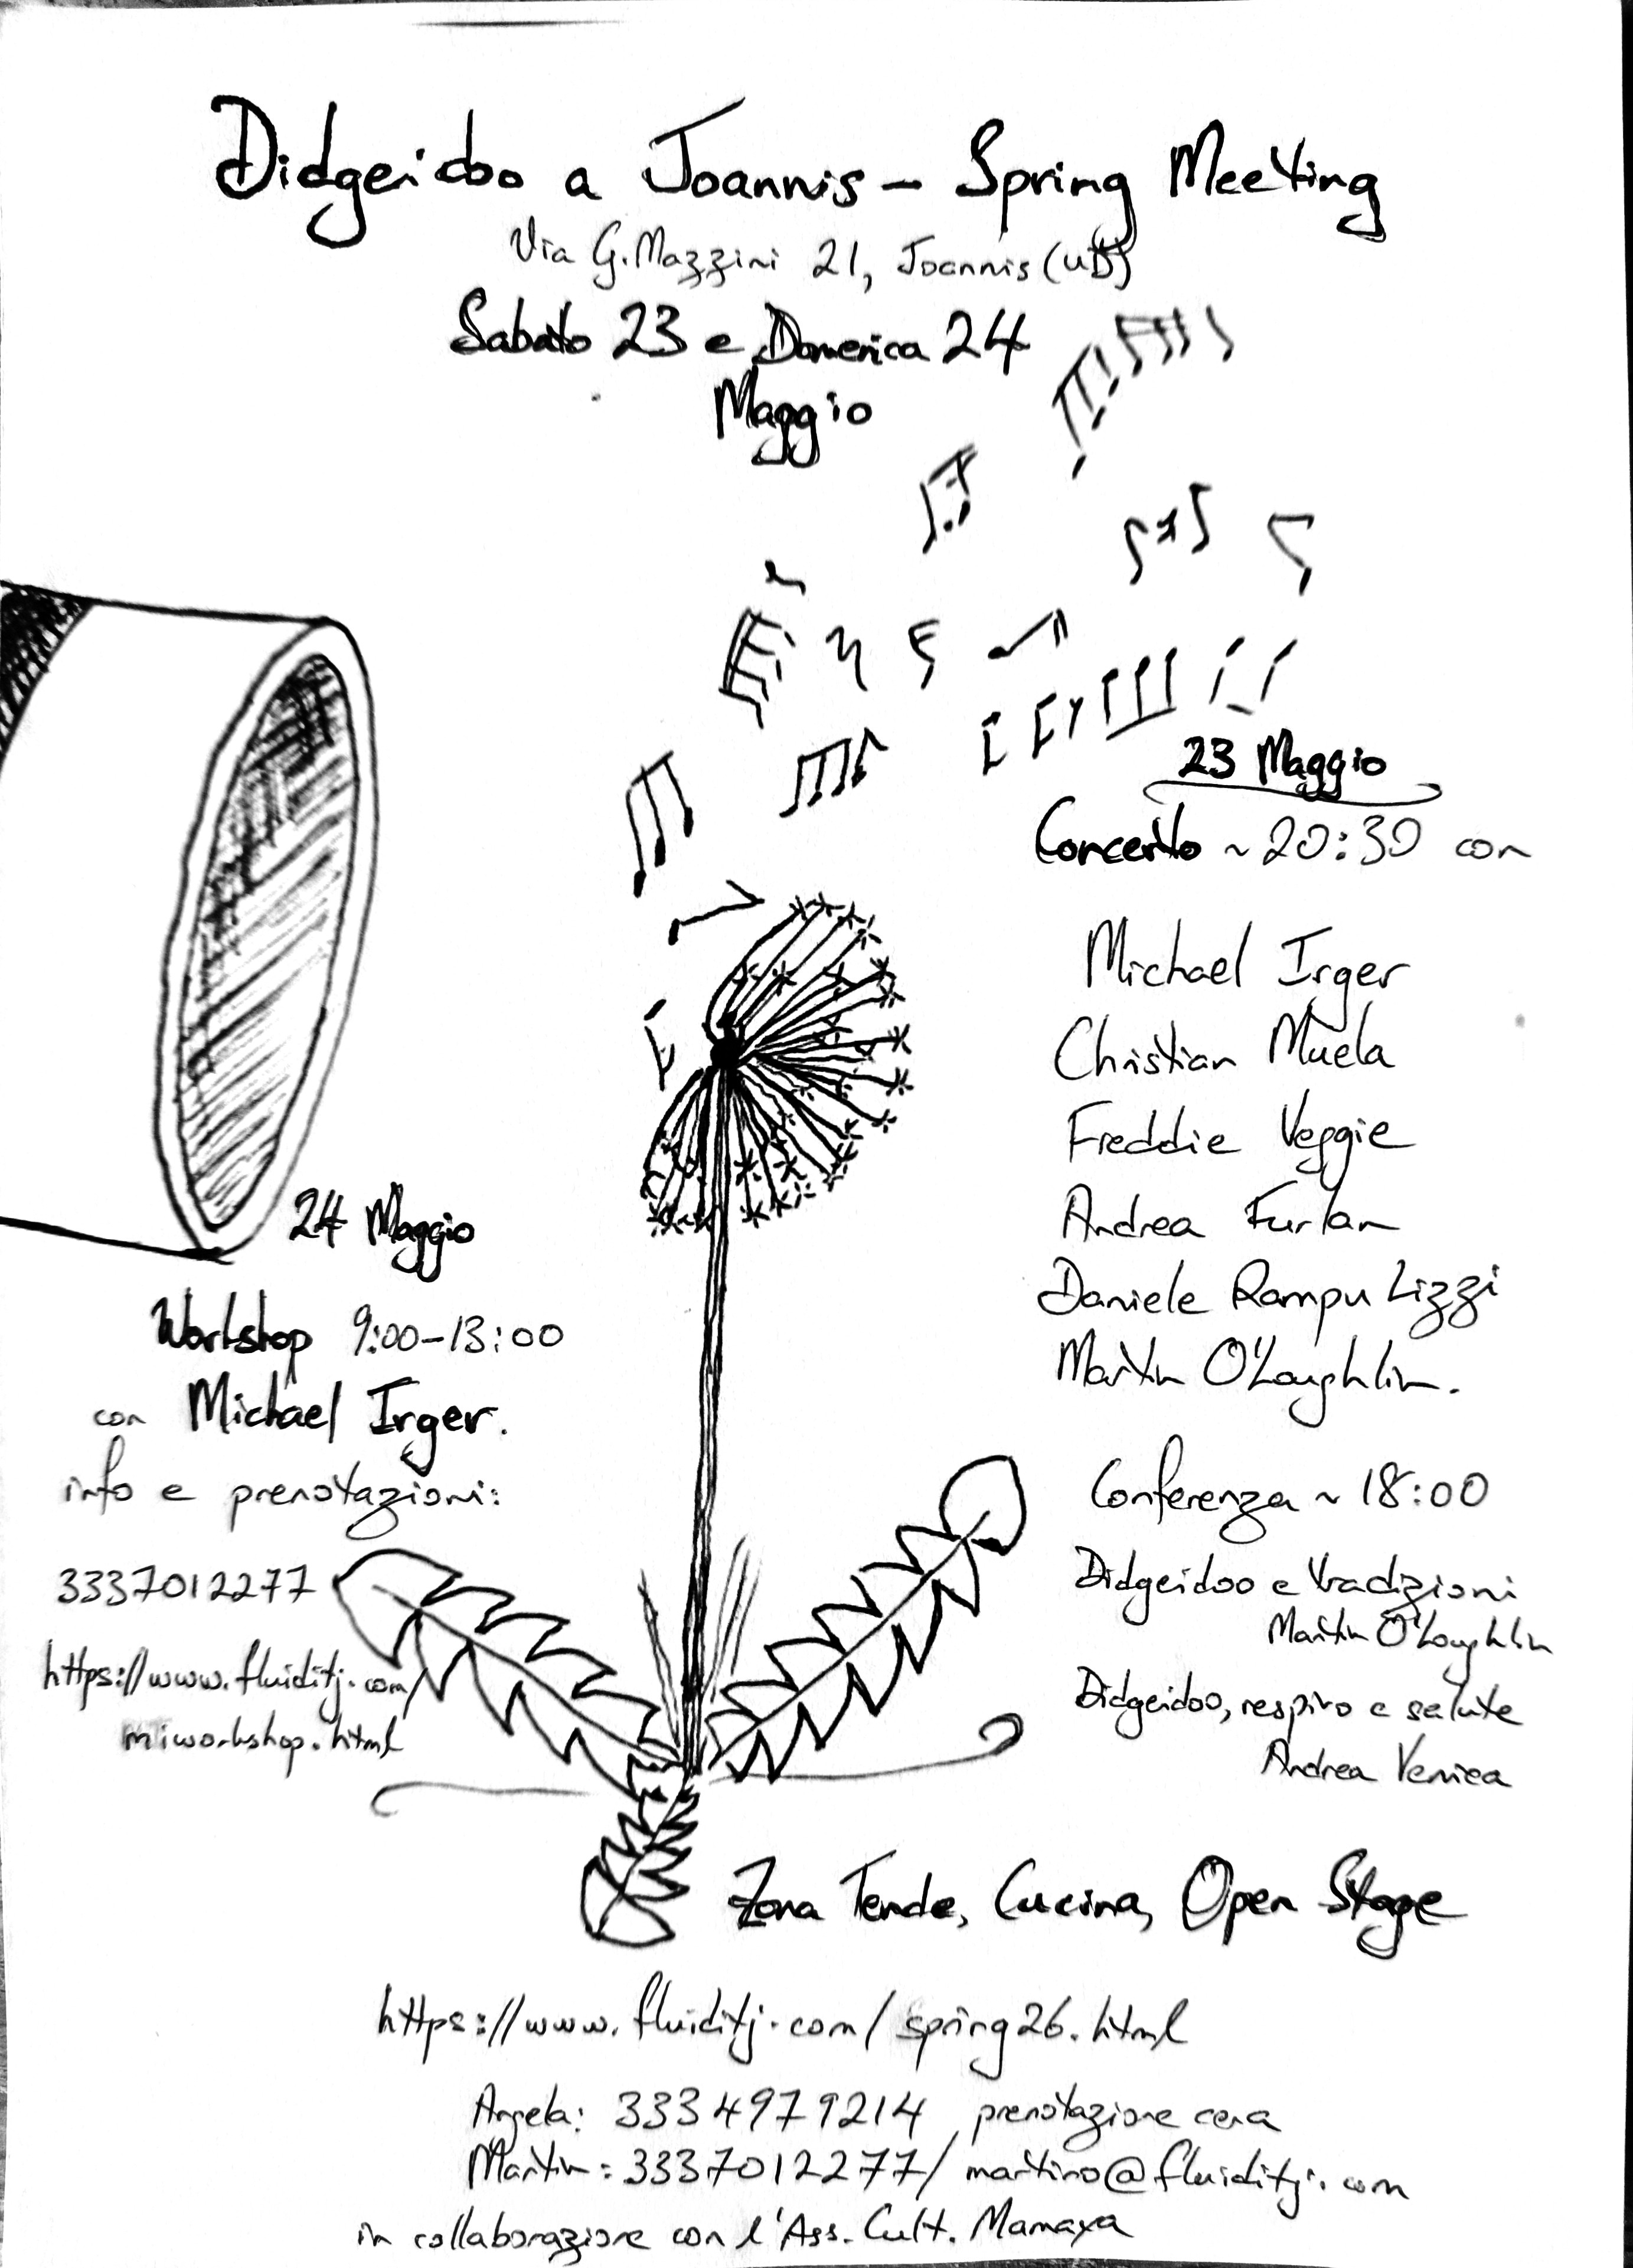 Didgeridoo a Joannis - Spring Meeting
Via G. Mazzini 21, Joannis (UD)
Sabato 23 e Domenica 24
Maggio
23 Maggio
Concerto ~ 20:30 con
Michael Irger
Christian Muela
Freddie Veggie
Andrea Furlan
Daniele Rampulizzi
Martin O'Loughlin.
Conferenza ~ 18:00
Didgeidoo e tradizioni
Martin O'Loughlin
Didgeidoo, respiro e salute
Andrea
24 Maggio
Workshop 9:00-13:00
con Michael Irger.
info e prenotazioni:
3337012277
https://www.fluiditj.com/
miworkshop.html
Zona Tende, Cucina, Open Stage
https://www.fluiditj.com/spring26.html
Angela: 3334979214 prenotazione cena
Martin: 3337012277/ martino@fluiditj.com
in collaborazione con l'Ass. Cult. Mamaya